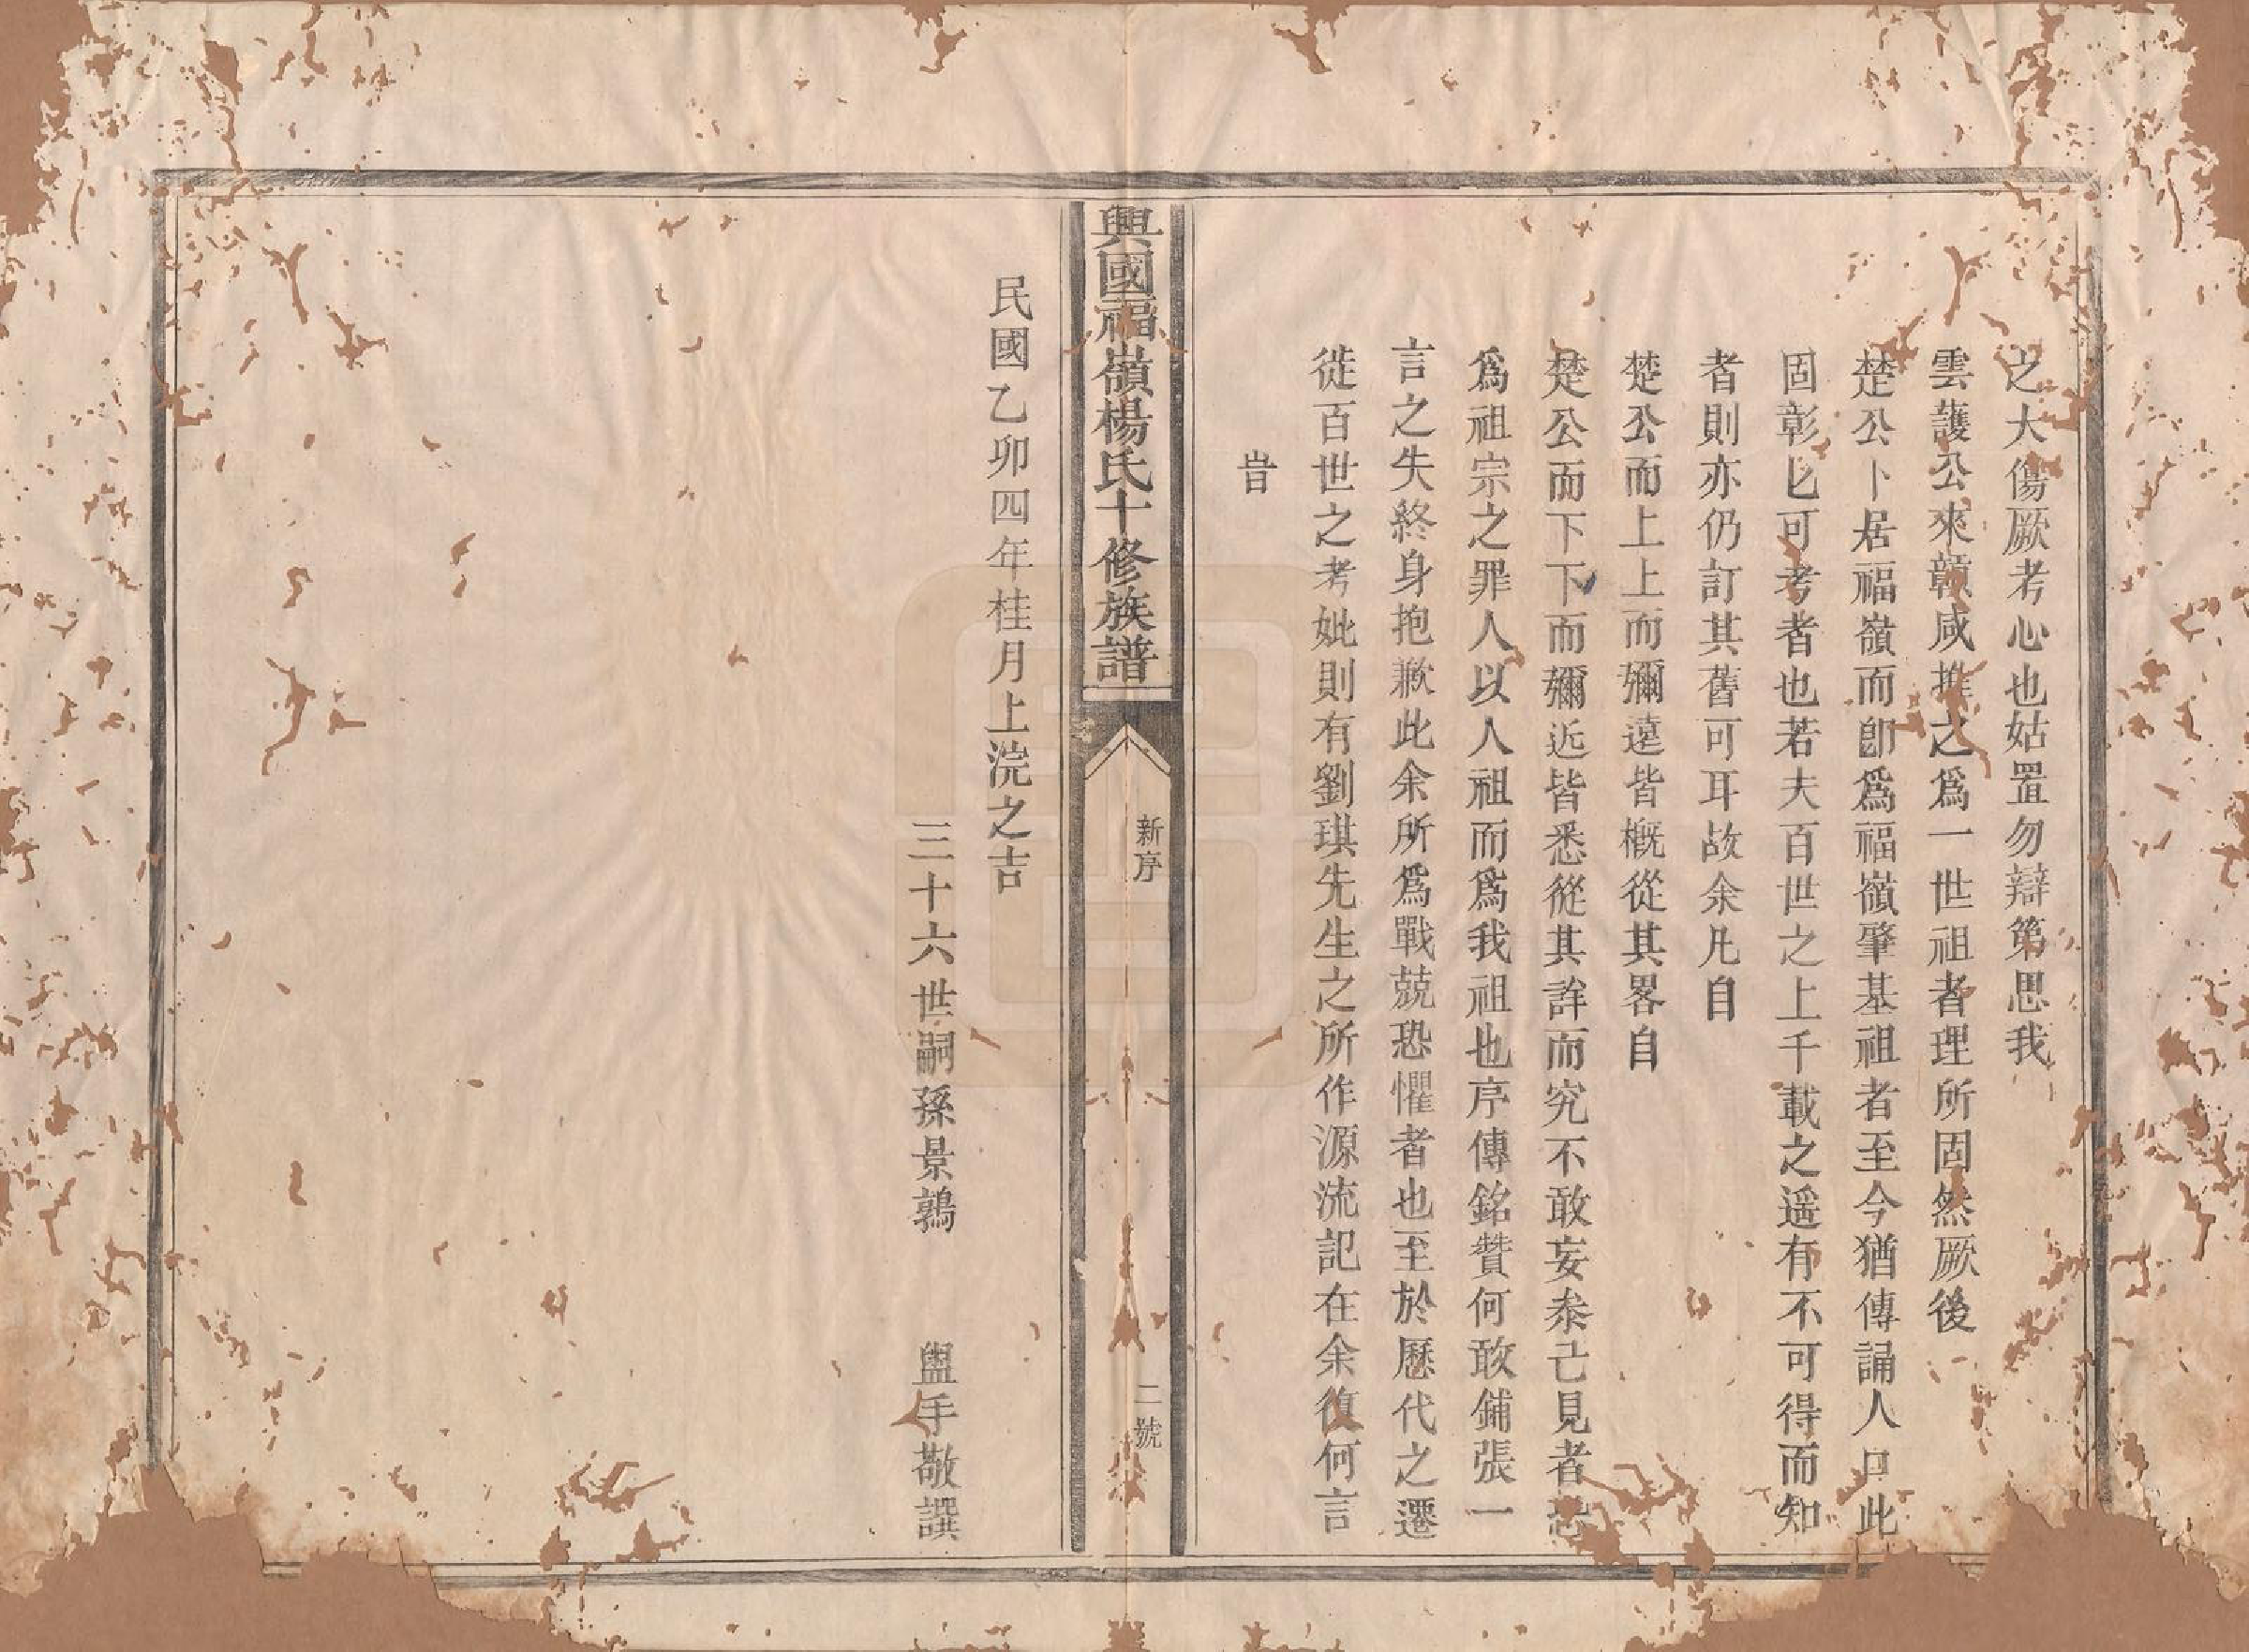 之大傷厥考心也姑置勿辯第思我
雲護公來贛咸推之爲一世祖者理所固然厥後
楚公卜居福嶺而卽爲福嶺肇基祖者至今猶傳誦人口此
固彰已可考者也若夫百世之上千載之遥有不可得而知
者則亦仍訂其舊可耳故余凡自
楚公而上上而彌遠皆槪從其畧自
楚公而下下而彌近皆悉從其詳而究不敢妄叅己見者恐
爲祖宗之罪人以人祖而爲我祖也序傳銘贊何敢鋪張一
言之失終身抱歉此余所爲戰兢恐懼者也至於歷代之遷
徙百世之考妣則有劉琪先生之所作源流記在余復何言
旹
興國福嶺楊氏十修族譜
新序
二號
民國乙卯四年桂月上浣之吉
三十六世嗣孫景鶉 盥手敬譔